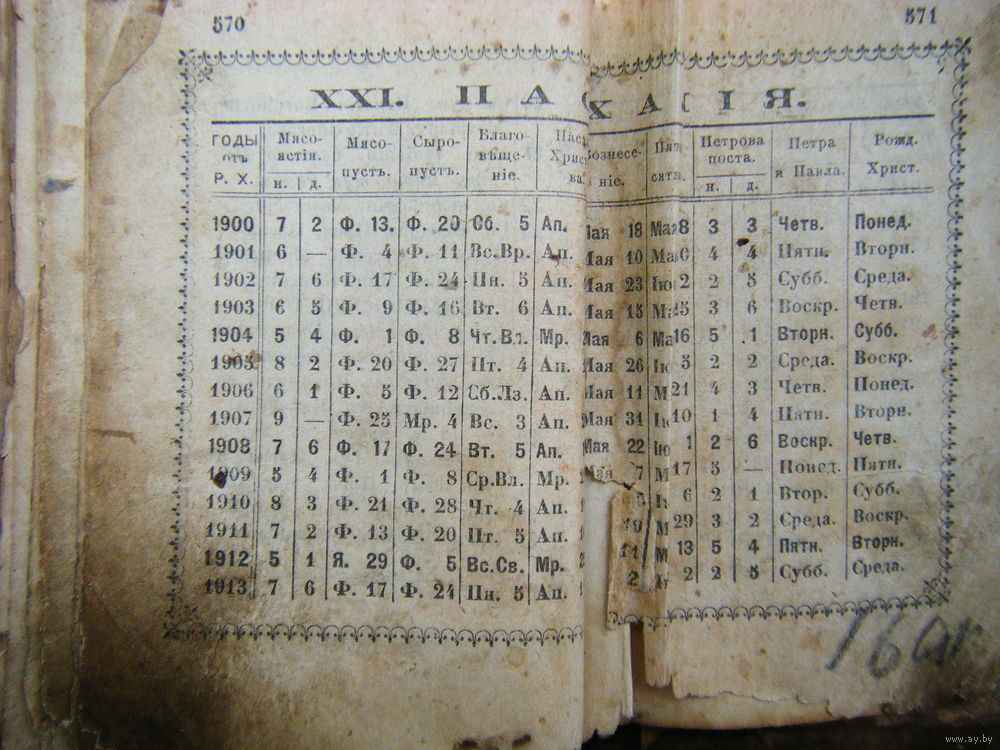 570
571
XXI. ПАСХАЛІЯ.
ГОДЫ отъ Р. Х. Мясо-ястія. н. д. Мясо-пустъ. Сыро-пустъ. Благо-вѣще-ніе. Пасх Хрис ва. Вознесе-ніе. Пят сятн. Петрова поста. н. д. Петра и Павла. Рожд. Христ.
1900 7 2 Ф. 13. Ф. 20 Сб. 5 Ап. Мая 18 Мая 8 3 3 Четв. Понед.
1901 6 — Ф. 4 Ф. 11 Вс.Вр. Ап. Мая 10 Ма 4 4 Пятн. Вторн.
1902 7 6 Ф. 17 Ф. 24 Пн. 5 Ап. Мая 23 Ію 2 2 5 Субб. Среда.
1903 6 5 Ф. 9 Ф. 16 Вт. 6 Ап. Мая 15 Ма 5 3 6 Воскр. Четв.
1904 5 4 Ф. 1 Ф. 8 Чт.Вл. Мр. Мая 6 Ма 16 5 1 Вторн. Субб.
1905 8 2 Ф. 20 Ф. 27 Пт. 4 Ап. Мая 26 Ію 5 2 2 Среда. Воскр.
1906 6 1 Ф. 5 Ф. 12 Сб.Лз. Ап. Мая 11 М 21 4 3 Четв. Понед.
1907 9 — Ф. 25 Мр. 4 Вс. 3 Ап. Мая 31 Ію 10 1 4 Пятн. Вторн.
1908 7 6 Ф. 17 Ф. 24 Вт. 5 Ап. Мая 22 Ію 1 2 6 Воскр. Четв.
1909 5 4 Ф. 1 Ф. 8 Ср.Вл. Мр. Мая 7 М 17 5 — Понед. Пятн.
1910 8 3 Ф. 21 Ф. 28 Чт. 4 Ап. Ію 6 2 1 Втор. Субб.
1911 7 2 Ф. 13 Ф. 20 Пт. 5 Ап. 19 М 29 3 2 Среда. Воскр.
1912 5 1 Я. 29 Ф. 5 Вс.Св. Мр. 11 М 13 5 4 Пятн. Вторн.
1913 7 6 Ф. 17 Ф. 24 Пн. 5 Ап. 2 Ію 2 2 5 Субб. Среда.
www.ay.by